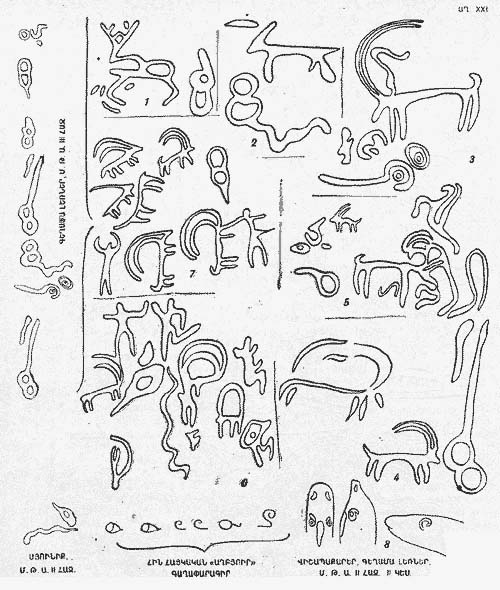 ԱՂ. XXI
ԳԵՂԱՄԱ ԼԵՌՆԵՐ, Մ. Թ. Ա. II ՀԱԶ.
1
2
3
7
5
6
4
8
ՍՅՈՒՆԻՔ,
Մ. Թ. Ա. II ՀԱԶ.
ՀԻՆ ՀԱՅԿԱԿԱՆ «ԱՂԲՅՈՒՐ»
ԳԱՂԱՓԱՐԱԳԻՐ
ՎԻՇԱՊԱՔԱՐԵՐ, ԳԵՂԱՄԱ ԼԵՌՆԵՐ,
Մ. Թ. Ա. II ՀԱԶ. II ԿԵՍ.